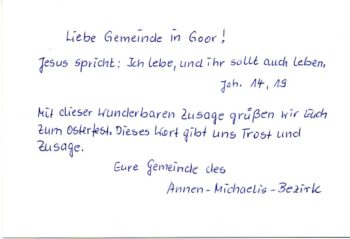 Liebe Gemeinde in Goor!
Jesus spricht: Ich lebe, und ihr sollt auch leben,
Joh. 14, 19
Mit dieser wunderbaren Zusage grüßen wir Euch
zum Osterfest. Dieses Wort gibt uns Trost und
Zusage.
Eure Gemeinde des
Annen-Michaelis-Bezirk